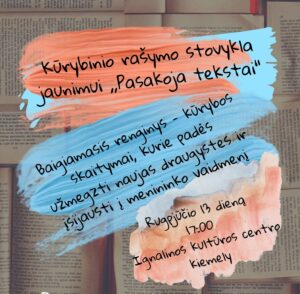 Kūrybinio rašymo stovykla
jaunimui „Pasakoja tekstai"
Baigiamasis renginys - kūrybos
skaitymai, kurie padės
užmegzti naujas draugystes ir
įsijausti į menininko vaidmenį
Rugpjūčio 13 diena
17.00
Ignalinos kultūros centro
kiemely